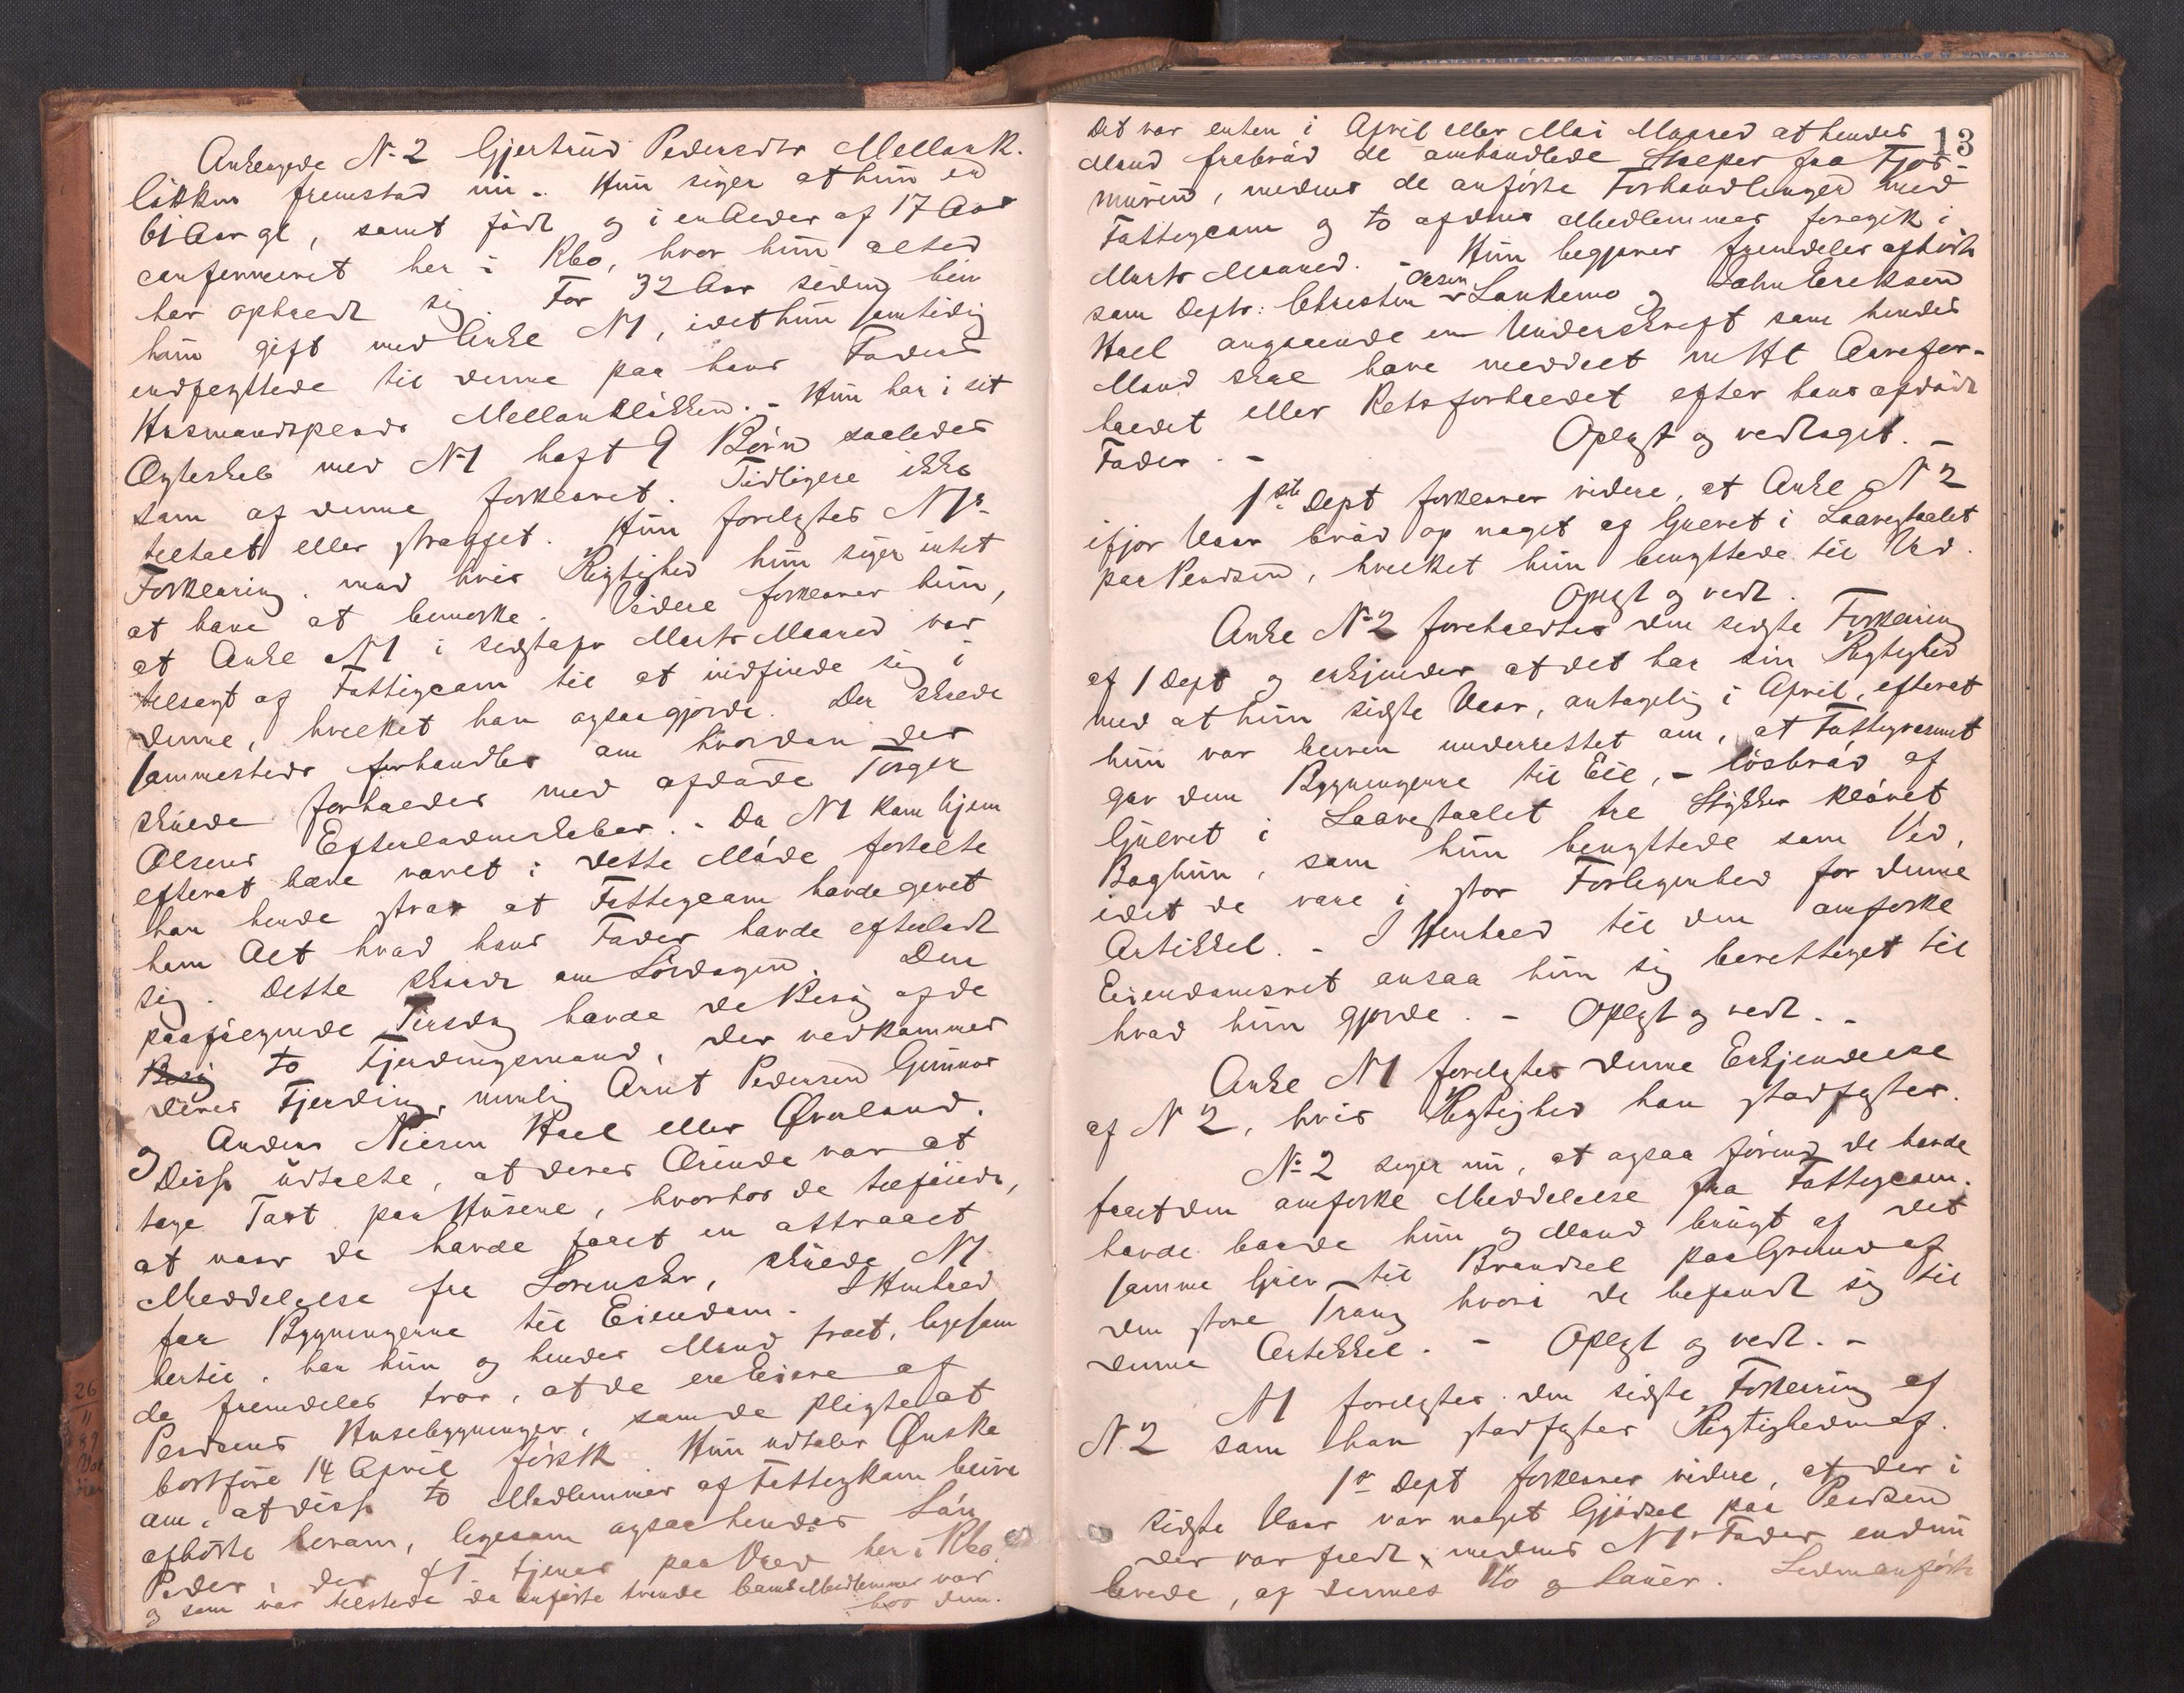 Anklagede N. 2 Gjertrud Pedersdtr Mellank.
løkken fremstod nu. Hun siger at hun er
61 Aar gl, samt født og i en Alder af 17 Aar
confirmeret her i Rbo, hvor hun altid
har opholdt sig. For 32 Aar siden blev
hun gift med Ankl N 1, idet hun samtidig
indflyttede til denne paa hans Faders
Husmandsplads Mellankløkken. - Hun har i sit
Ægteskab med N 1 havt 9 Børn saaledes
som af denne forklaret. Tidligere ikke
tiltalt eller straffet. Hun forelgtes N 1s
Forklaring, mod hvis Rigtighed hun siger intet
at have at bemerke. Videre forklarer hun,
at Ankl N 1 i sidstafv Marts Maaned var
tilsagt af Fattigcom til at indfinde sig i
denne, hvilket han ogsaa gjorde. Der skede
sammesteds forhandles om hvordan der
skulde forholdes med afdøde Torger
Olsens Efterladenskaber. - Da N 1 kom hjem
efterat have været i dette Møde fortalte
han hende strax at Fattigcom havde givet
ham Alt hvad hans Fader havde efterladt
sig. Dette skede om Lørdagen. Den
paafølgende Tirsdag havde de Besøg af de
to Fjerdingsmænd, der vedkommer
deres Fjerding, nemlig Arnt Pedersen Gunnes
og Anders Nilsen Hoel eller Øverland.
Disse udtalte, at deres Ærinde var at
tage Taxt paa Husene, hvorhos de tilføiede,
at naar de havde faaet en attraaet
Meddelelse fra Lorenskr, skulde N 1
faa Bygningerne til Eiendom. I Henhold
hertil, har hun og hendes Mand troet, ligesom
de fremdeles tror, at de ere Eiere af
Pladsens Husebygninger, som de pligte at
bortføre 14 April førstk. Hun udtaler Ønske
om, at disse to Medlemmer af Fattigkom blive
afhørte herom, ligesom ogsaa hendes Søn
Peder, der f T. tjener paa Vold her i Rbo.
og som var tilstede da anførte tvende Com Medlemmer var
hos dem.
13
Det var enten i April eller Mai Maaned at hendes
Mand frabrød de omhandlede Stolper fra Fjøs-
muren, medens de anførte Forhandlinger med
Fattigcom og to af dens Medlemmer foregik i
Marts Maaned. - Hun begjærer fremdeles afhørt
som Deptr: Christen Olsen Lankemo og John Eriksen
Hoel angaaende en Underskrift som hendes
Mand skal have meddelt mHt Arvefor-
holdet eller Retsforholdet efter hans afdøde
Fader. - Oplæst og vedtaget. -
1ste Dept forklarer videre, at Ankl N 2
ifjor Vaar brød op noget af Gulvet i Laavestaalet
paa Pladsen, hvilket hun benyttede til Ved.
Oplæst og vedt.
Ankl N 2 foreholdtes den sidste Forklaring
af 1 Dept og erkjender at det har sin Rigtighed
med at hun sidste Vaar, antagelig i April, efterat
hun var bleven underrettet om, at Fattigvæsenet
gav dem Bygningerne til Eie, - løsbrød af
Gulvet i Laavestaalet tre Stykker kløvet
Baghun, som hun benyttede som Ved,
idet de vare i stor Forlegenhed for denne
Artikkel. - I Henhold til den omforkl
Eiendomsret ansaa hun sig berettiget til
hvad hun gjorde. - Oplæst og vedt. -
Ankl N 1 forelgtes denne Erkjendelse
af N 2, hvis Rigtighed han stadfæster.
N. 2 siger nu, at ogsaa førend de havde
faaet den omforkl Meddelelse fra Fattigcom.
havde baade hun og Mand brugt af det
samme Gulv til Brændsel paa Grund af
den store Trang hvori de befandt sig til
denne Artikkel. - Oplæst og vedt. -
N 1 forelgtes den sidste Forklaring af
N 2 som han stadfæster Rigtigheden af.
1ste Dept forklarer videre, at der i
sidste Vaar var noget Gjødsel paa Pladsen
der var fredt, medens N 1s Fader endnu
levede, af dennes Ko og Sauer. Ledmanførte